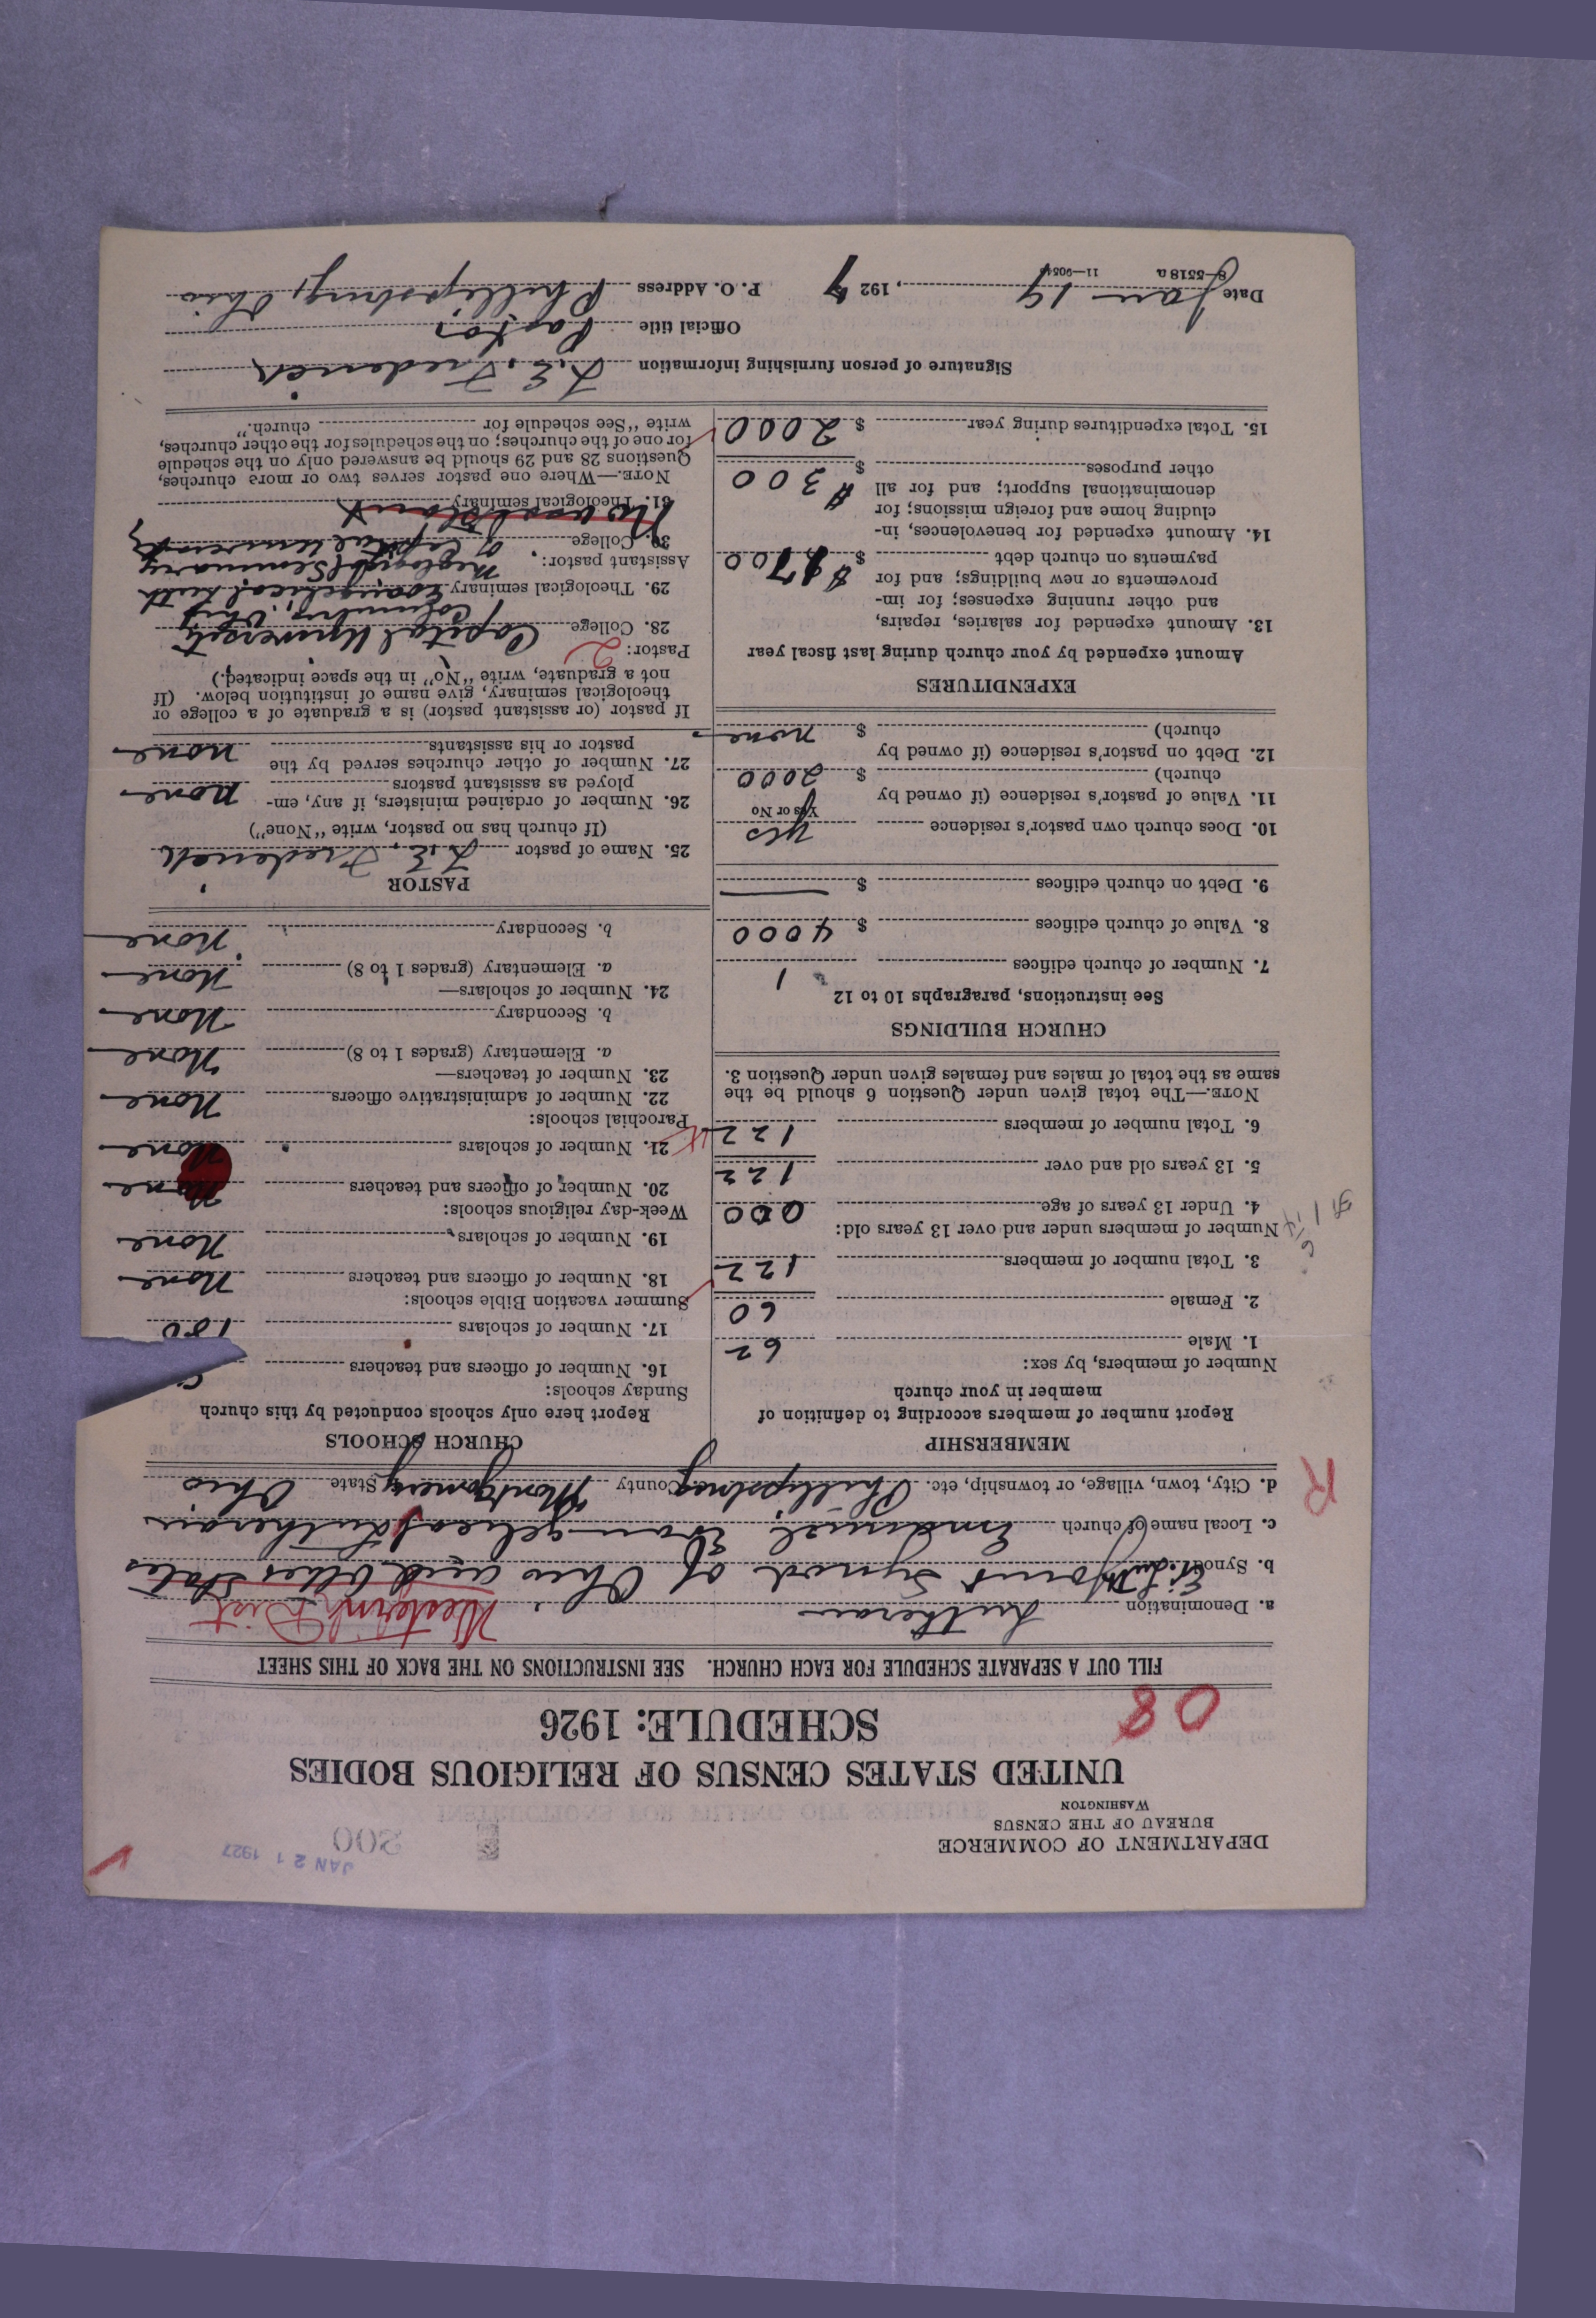 DEPARTMENT OF COMMERCE
BUREAU OF THE CENSUS
WASHINGTON
JAN 21 1927
200
UNITED STATES CENSUS OF RELIGIOUS BODIES
SCHEDULE: 1926
08
FILL OUT A SEPARATE SCHEDULE FOR EACH CHURCH. SEE INSTRUCTIONS ON THE BACK OF THIS SHEET
a. Denomination Lutheran Western Dist
b. Synod Joint Synod of Ohio and Other States
c. Local name of church Emanuel Evangelical Lutheran
d. City, town, village, or township, etc. Phillipsburg County Montgomery State Ohio
R
MEMBERSHIP
Report number of members according to definition of
member in your church
Number of members, by sex:
1. Male 62
2. Female 60
3. Total number of members 122
Number of members under and over 13 years old:
4. Under 13 years of age 000
5. 13 years old and over 122
6. Total number of members 122
NOTE.—The total given under Question 6 should be the
same as the total of males and females given under Question 3.
CHURCH BUILDINGS
See instructions, paragraphs 10 to 12
7. Number of church edifices 1
8. Value of church edifices $ 4000
9. Debt on church edifices $
10. Does church own pastor's residence yes
Yes or No
11. Value of pastor's residence (if owned by
church) $ 2000
12. Debt on pastor's residence (if owned by
church) $ none
EXPENDITURES
Amount expended by your church during last fiscal year
13. Amount expended for salaries, repairs,
and other running expenses; for im-
provements or new buildings; and for
payments on church debt $ $1700
14. Amount expended for benevolences, in-
cluding home and foreign missions; for
denominational support; and for all
other purposes $ $300
15. Total expenditures during year $ 2000
CHURCH SCHOOLS
Report here only schools conducted by this church
Sunday schools:
16. Number of officers and teachers
17. Number of scholars 100
Summer vacation Bible schools:
18. Number of officers and teachers None
19. Number of scholars None
Week-day religious schools:
20. Number of officers and teachers None
21. Number of scholars None
Parochial schools:
22. Number of administrative officers None
23. Number of teachers—
a. Elementary (grades 1 to 8) None
b. Secondary None
24. Number of scholars—
a. Elementary (grades 1 to 8) None
b. Secondary None
PASTOR
25. Name of pastor L. E. Frederick
(If church has no pastor, write "None")
26. Number of ordained ministers, if any, em-
ployed as assistant pastors None
27. Number of other churches served by the
pastor or his assistants none
If pastor (or assistant pastor) is a graduate of a college or
theological seminary, give name of institution below. (If
not a graduate, write "No" in the space indicated.)
Pastor: 2
28. College Capital University
Columbus, Ohio
29. Theological seminary Evangelical Luth
Theological Seminary
Assistant pastor:
30. College of Capital University
31. Theological seminary No assistant
NOTE.—Where one pastor serves two or more churches,
Questions 28 and 29 should be answered only on the schedule
for one of the churches; on the schedules for the other churches,
write "See schedule for church."
Signature of person furnishing information L. E. Frederick
Official title Pastor
Date Jan 19, 1927 P. O. Address Phillipsburg, Ohio
8—5518 a